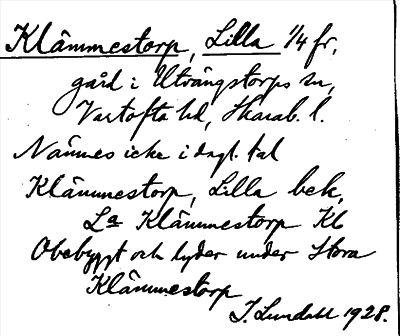 Klämmestorp, Lilla 1/4 fr,
gård i Utvängstorps sn,
Vartofta hd, Skarab. l.
Nämnes icke i dagl. tal
Klämmestorp, Lilla bek,
La Klämmestorp Kb
Obebyggt och lyder under Stora
Klämmestorp
J. Lundahl 1928.